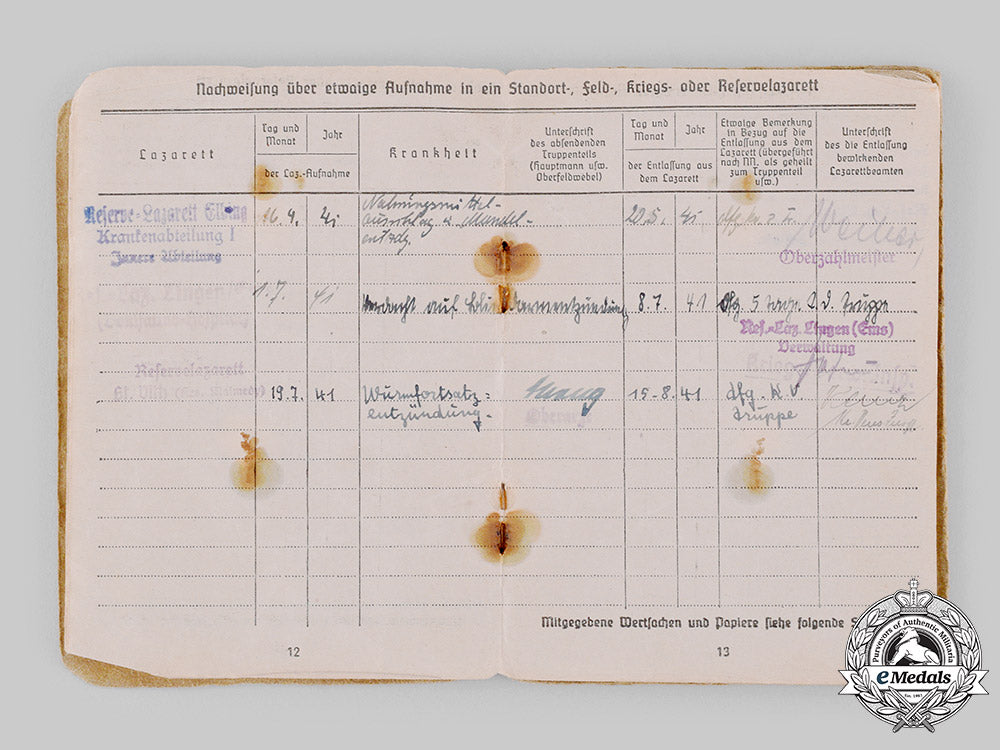 Nachweisung über etwaige Aufnahme in ein Standort-, Feld-, Kriegs- oder Reservelazarett
Lazarett
Tag und
Monat
Jahr
der Laz.-Aufnahme
Krankheit
Unterschrift
des absendenden
Truppenteils
(Hauptmann usw.
Oberfeldwebel)
Tag und
Monat
Jahr
der Entlassung aus
dem Lazarett
Etwaige Bemerkung
in Bezug auf die
Entlassung aus dem
Lazarett (übergeführt
nach NN. als geheilt
zum Truppenteil
usw.)
Unterschrift
des die Entlassung
bewirkenden
Lazarettbeamten
Reserve-Lazarett Elbing
Krankenabteilung I
Innere Abteilung
16.4. 41
Nahrungsmittel-
ausschlag u. Mandel-
entzdg.
20.5. 41
Oberzahlmeister
1.7. 41
Verdacht auf Blinddarmentzündung
8.7. 41
dfg. 5 Tage z. d. Truppe
Res.-Laz. Lingen (Ems)
Verwaltung
Reservelazarett
St. Vith
19.7. 41
Wurmfortsatz=
entzündung.
15.8. 41
dfg.
Truppe
Mitgegebene Wertsachen und Papiere siehe folgende S
12
13
Purveyors of Authentic Militaria
eMedals